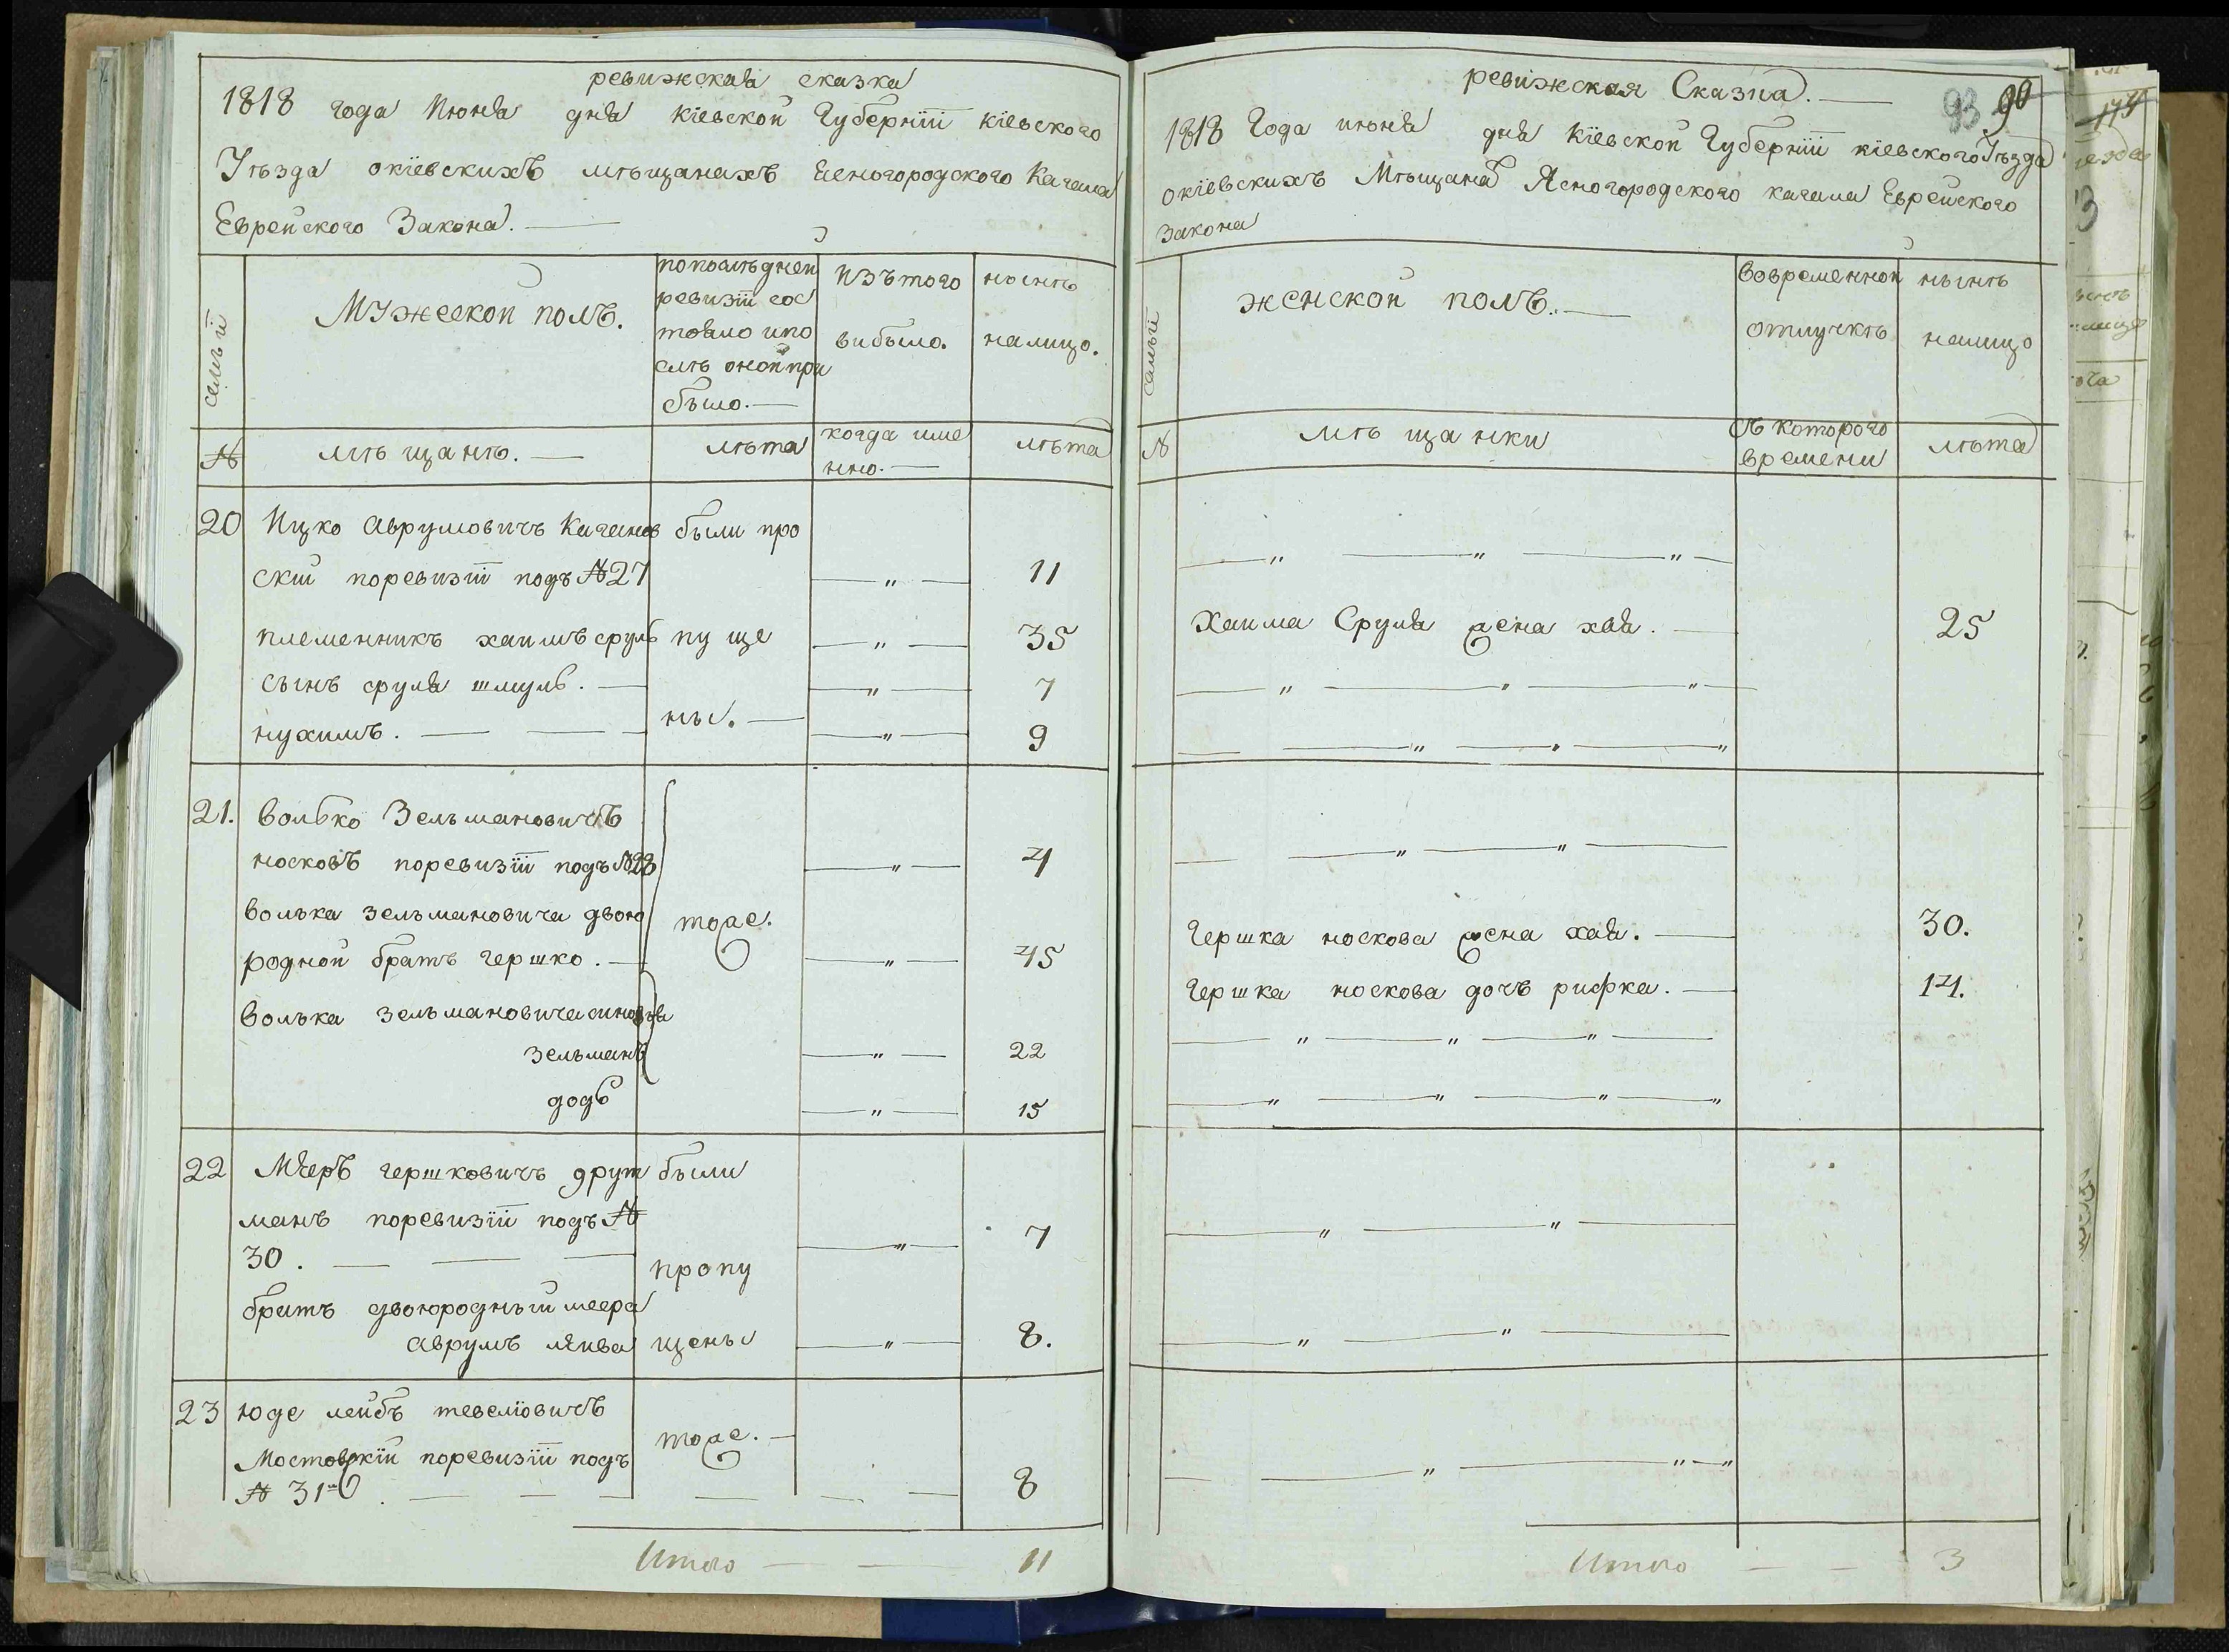 ревижская сказка
1818 года Июня дня Кіевской Губерніи кіевского
Уѣзда окіевскихъ мѣщанахъ Есногородского Кагала
Еврейского Закона.
семьи
Мужеской полъ.
попослѣдней
ревизіи сос
тояло ипо
слѣ оной при
было.
изъ того
выбыло.
нынѣ
налицо.
№
мѣщанѣ.
лѣта
когда име
нно.
лѣта
20 Ицко Аврумовичъ Каганов были про
скій поревизіи подъ №27 " 11
племенникъ хаимъ сруль пуще " 35
сынъ сруля шмуль. " 7
ны.
нухимъ. " 9
21. Волько Зельмановичъ
носковъ поревизіи подъ №28 " 4
Волька зельмановича двою тоже.
родной братъ гершко. " 45
Волька зельмановича синовья
зельманъ " 22
додь " 15
22 Мееръ гершковичъ друт были
манъ поревизіи подъ № " 7
30. пропу
братъ двоюродный меера
аврумъ щены " 8.
23 юде лейбъ тевеліовичъ
Мостовскій поревизіи подъ тоже.
№ 31мъ 8
Итого 11
ревижская Сказка. 93 90
1818 Года июня дня Кіевской Губерніи кіевского Уѣзда
окіевскихъ Мѣщана Ясногородского кагала Еврейского
Закона
семьи
женской полъ.
Вовременной
отлучкѣ
нынѣ
налицо
№
мѣщанки
съ которого
времени
лѣта
" " "
Хаима Сруля жена хая. 25
" " "
" " "
" "
Гершка носкова жена хая. 30.
Гершка носкова дочь рифка. 14.
" " "
" " " "
" "
" "
" " "
Итого 3
174